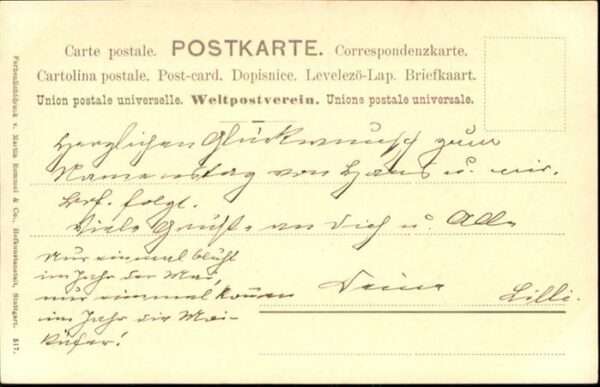 Carte postale. POSTKARTE. Correspondenzkarte.
Cartolina postale. Post-card. Dopisnice. Levelező-Lap. Briefkaart.
Union postale universelle. Weltpostverein. Unione postale universale.
Herzlichen Glückwunsch zum
Namenstag von Hans u. mir.
Brf. folgt.
Viele Grüße an Dich u. Alle
Deine Lilli.
Nur einmal blüht
im Jahr der Mai,
nur einmal
im Jahr die Mai-
Käfer!
Farbenlichtdruck v. Martin Rommel & Co., Hofkunstanstalt, Stuttgart. 517.